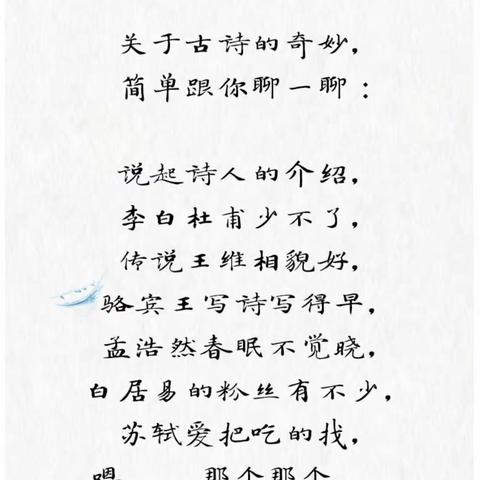 关于古诗的奇妙，
简单跟你聊一聊：
说起诗人的介绍，
李白杜甫少不了，
传说王维相貌好，
骆宾王写诗写得早，
孟浩然春眠不觉晓，
白居易的粉丝有不少，
苏轼爱把吃的找，
嗯……那个那个